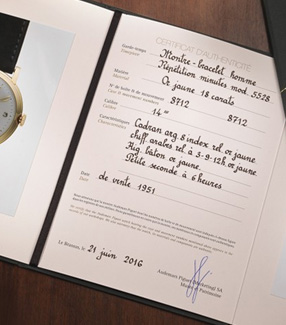 CERTIFICAT D'AUTHENTICITÉ
Garde-temps Montre-bracelet homme
Timepiece Répétition minutes mod. 5528.
Matière Or jaune 18 carats
Material
N° de boîte & de mouvement 8712 8712
Case & movement numbers
Calibre 14'''
Calibre
Caractéristiques Cadran arg. 8 index rel. or jaune
Characteristics chiff. arabes rel. à 3-9-12h or jaune
Aig. bâton or jaune.
Petite seconde à 6 heures
Date de vente 1951.
Date
Le Brassus, le 21 juin 2016
Audemars Piguet (Marketing) SA